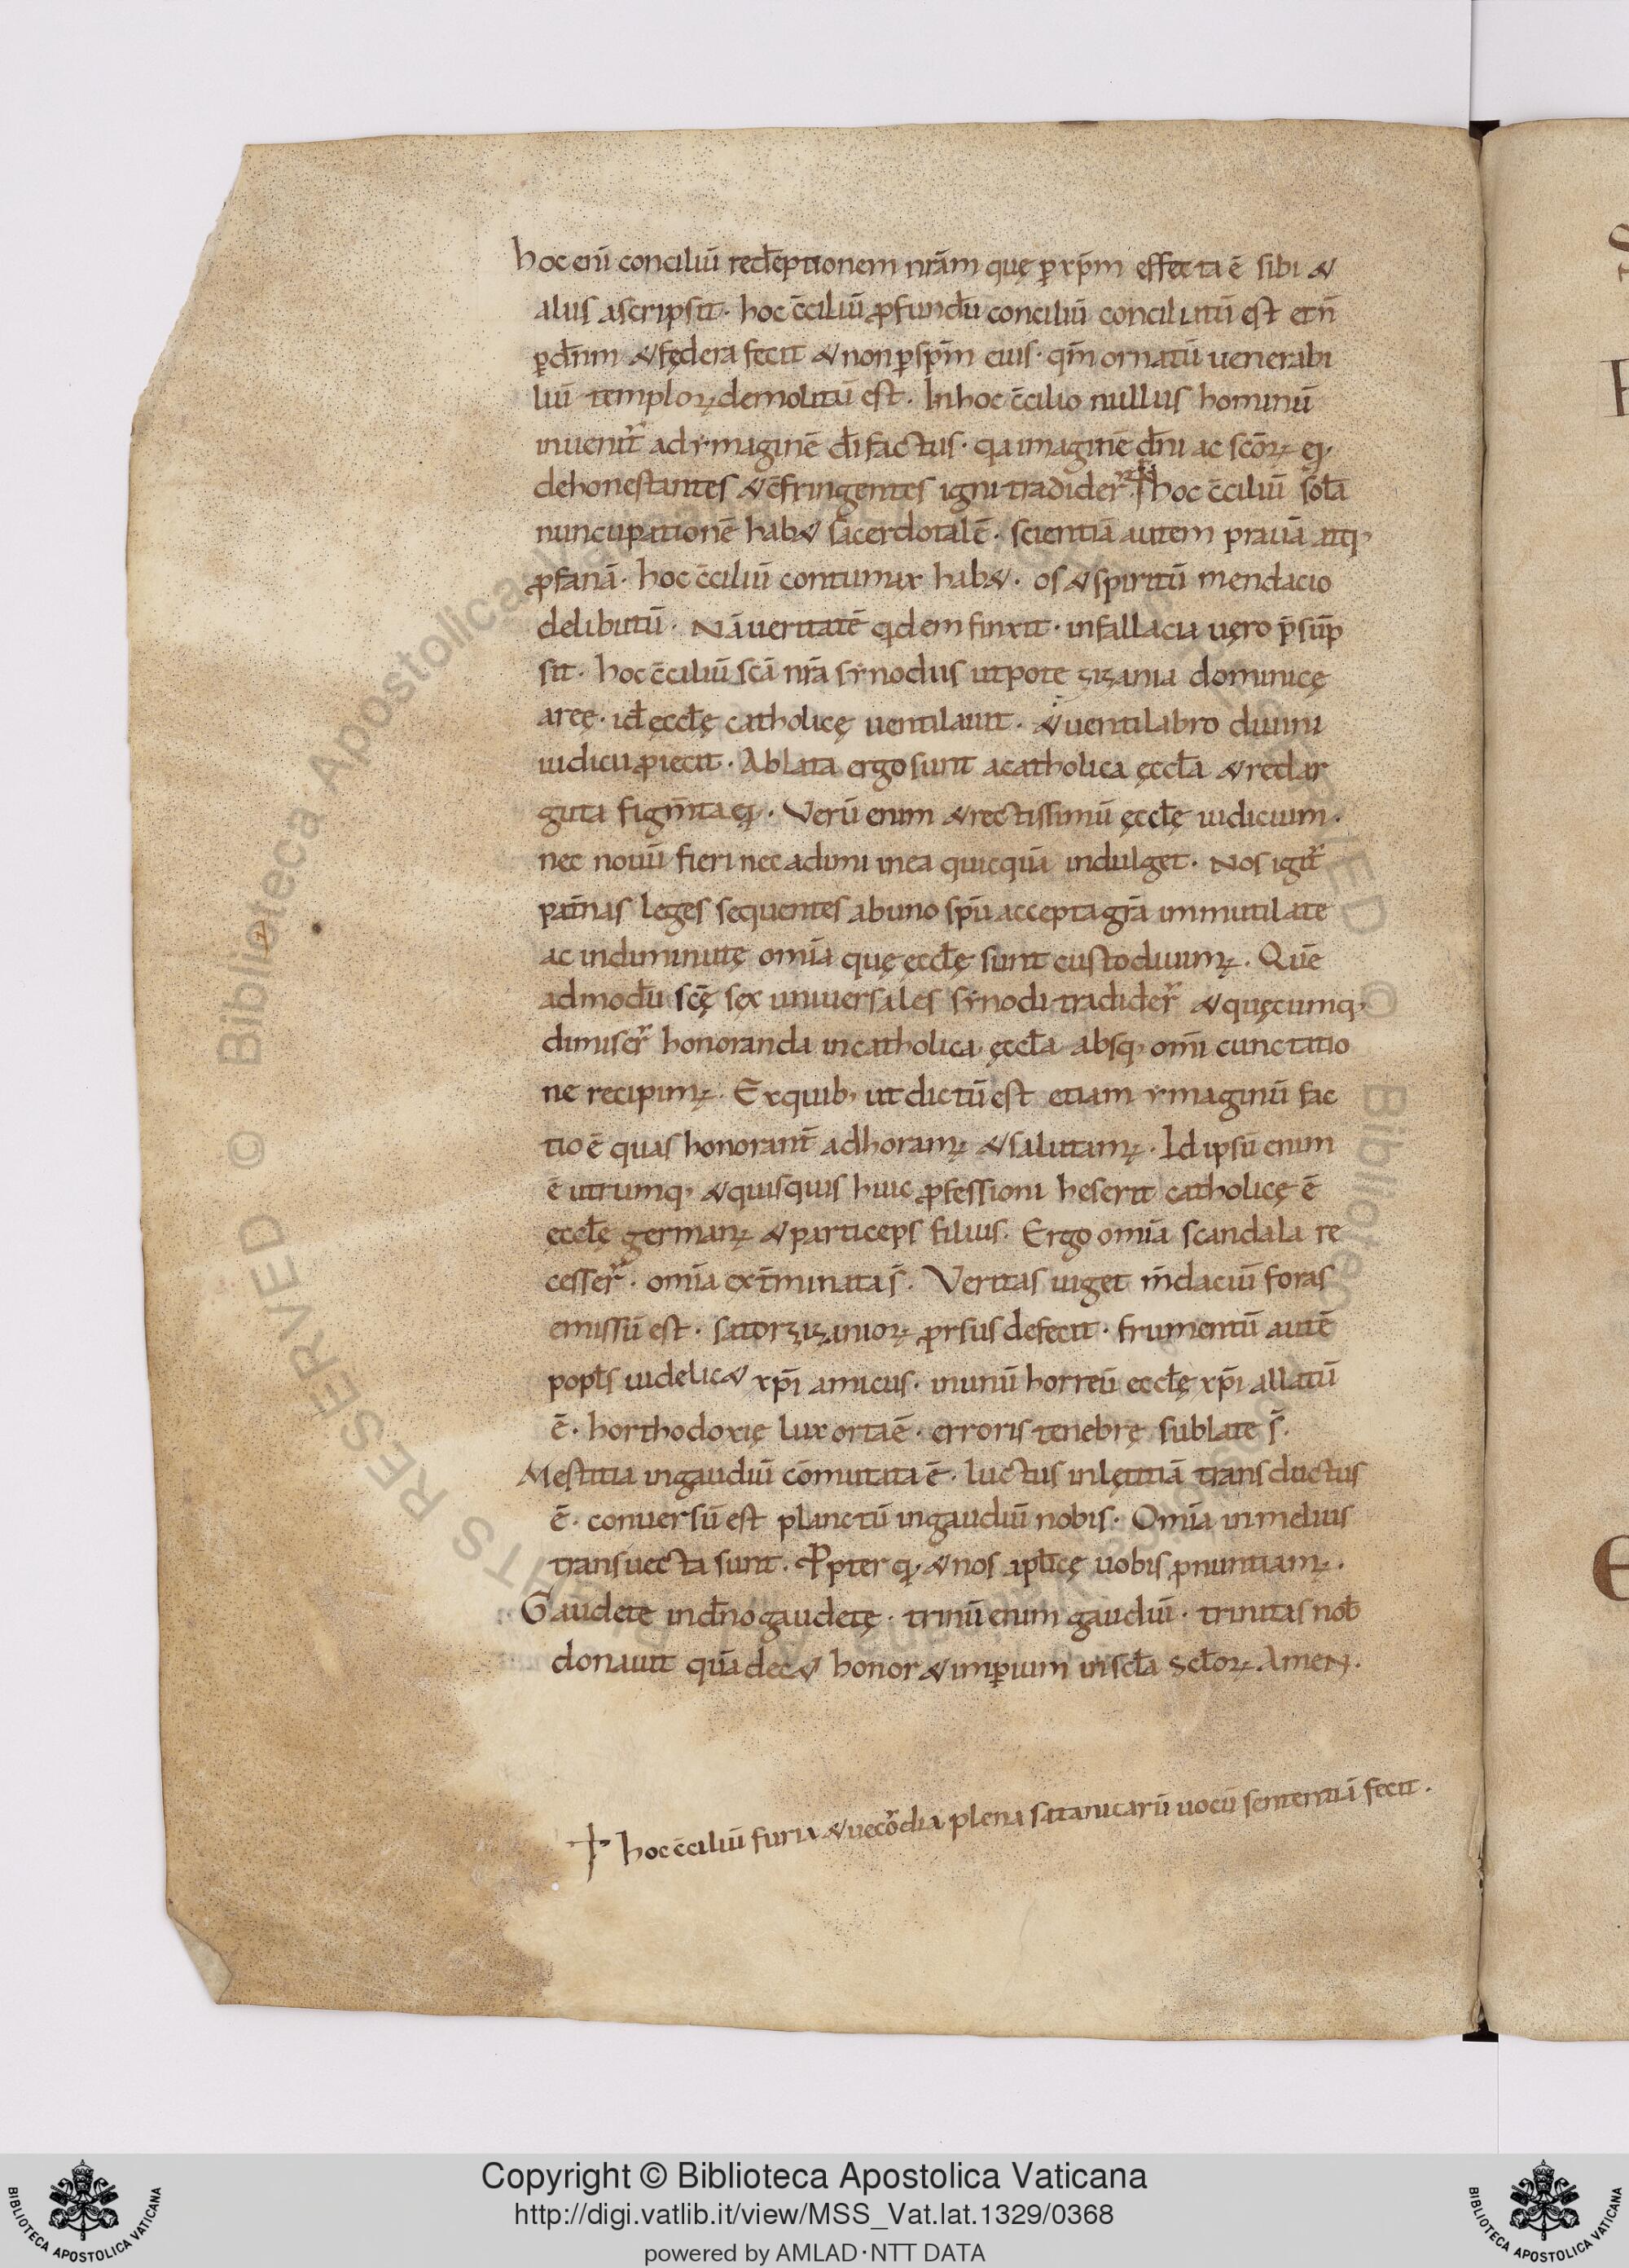 hoc eni̅ conciliu̅ rede̅ptionem nr̅am quę ꝑ xp̅m effecta e̅ sibi &
aliis ascripsit· hoc c̅ciliu̅ ꝓfundu̅ conciliu̅ conciliatu̅ est et n̅
ꝑ dn̅m & fędera fecit & non ꝑ sp̅m eius· qm̅ ornatu̅ uenerabi
liu̅ temploꝝ demolitu̅ est. In hoc c̅cilio nullus hominu̅
inuenit᷑ ad ymagine̅ di̅ factus· qa imagine̅ dn̅i ac sc̅oꝝ ei·
dehonestantes & c̅fringentes igni tradider᷑ hoc c̅ciliu̅ sola̅
nuncupatione̅ hab& sacerdotale̅· scientia̅ autem praua̅ atq·
ꝓfana̅· hoc c̅ciliu̅ contumax hab&· os & spiritu̅ mendacio
delibutu̅· Na̅ ueritate̅ qdem finxit· in fallacia uęro p̅su̅p
sit· hoc c̅ciliu̅ sc̅a nr̅a synodus utpote zizania dominicę
aręę· id̅ ęccl̅ę catholicę uentilauit· & uentilabro diuini
iudicii ꝓiecit· Ablata ergo sunt a catholica ęccl̅a & redar
guta figm̅ta ei·. Veru̅ enim & rectissimu̅ ęccl̅ę iudicium·
nec nouu̅ fieri nec adimi in ea quicqua̅ indulget· Nos igit᷑
pat̅nas leges sequentes ab uno spu̅ accepta gr̅a immutilate
ac indiminutę omi̅a quę ęccl̅ę sunt custodiuimꝰ. Que̅
admodu̅ sc̅ę sex uniuersales synodi tradider᷑ & quęcumq·
dimiser᷑ honoranda in catholica ęccl̅a absq· omi̅ cunctatio
ne recipimꝰ. Ex quib· ut dictu̅ est etiam ymaginu̅ fac
tio e̅ quas honorant̅ adhoramꝰ & salutamꝰ. Id ipsu̅ enim
e̅ utrumq· & quisquis huic ꝓfessioni heserit catholicę e̅
ęccl̅ę germanꝰ & particeps filius. Ergo omi̅a scandala re
cesser᷑· omi̅a ext̅minata s̅. Veritas uiget m̅daciu̅ foras
emissu̅ est· sator zizanioꝝ ꝓrsus defecit· frumentu̅ aute̅
popl̅s uidelic& xp̅i amicus· in unu̅ horreu̅ eccl̅ę xp̅i allatu̅
e̅· horthodoxię lux orta e̅· erroris tenebrę sublate s̅.
Mestitia in gaudiu̅ co̅mutata e̅· luctus in lętitia̅ transductus
e̅· conuersu̅ est planctu̅ in gaudiu̅ nobis· Omi̅a in melius
transuecta sunt. Ꝓpter q· & nos apl̅icę uobis ꝓnuntiamꝰ.
Gaudete in dn̅o gaudetę· trinu̅ enim gaudiu̅· trinitas nob̅
donauit qua̅ dec& honor & imꝑium in scl̅a scl̅oꝝ Amen.
† hoc c̅ciliu̅ furia & uecordia plena satanicaru̅ uocu̅ sententia̅ fecit.
Copyright © Biblioteca Apostolica Vaticana
http://digi.vatlib.it/view/MSS_Vat.lat.1329/0368
powered by AMLAD·NTT DATA
BIBLIOTECA APOSTOLICA VATICANA
BIBLIOTECA APOSTOLICA VATICANA